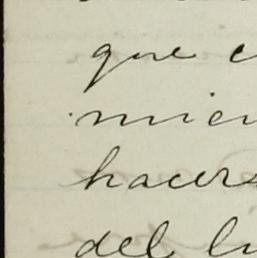 que c
mien
hacers
del li